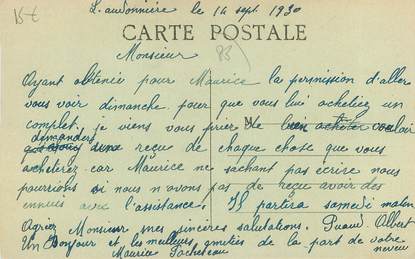 L'audonnière le 14 sept 1930
15€
CARTE POSTALE
83)
Monsieur
Ayant obtenue pour Maurice la permission d'aller
vous voir dimanche pour que vous lui achetiez un
complet, je viens vous prier de bien acheter vouloir
demander
reçue de chaque chose que vous
acheterez car Maurice ne sachant pas écrire nous
pourrions si nous n'avons pas de reçue avoir des
ennuis avec l'assistance. Il partira samedi matin
Agréez Monsieur mes sincères salutations. Albert
Un Bonjour et les meilleurs amitiés de la part de votre
neveu
Maurice